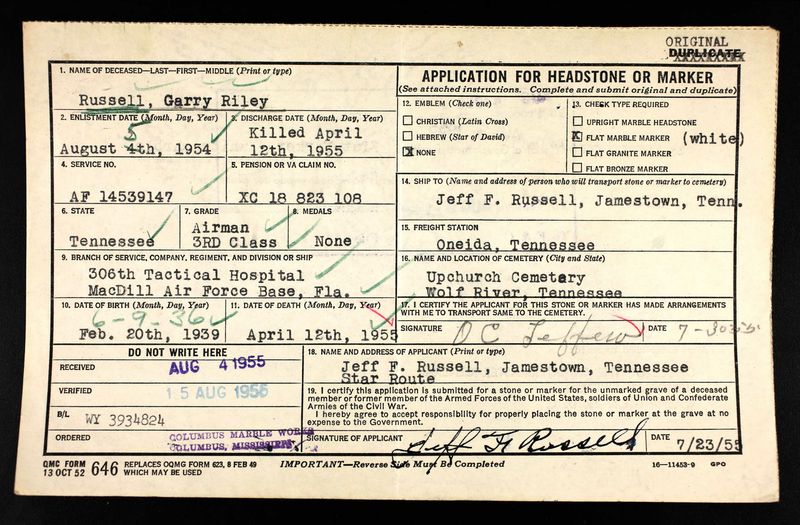 ORIGINAL
DUPLICATE
1. NAME OF DECEASED—LAST—FIRST—MIDDLE (Print or type)
Russell, Garry Riley
2. ENLISTMENT DATE (Month, Day, Year)
5
August 4th, 1954
3. DISCHARGE DATE (Month, Day, Year)
Killed April
12th, 1955
4. SERVICE NO.
AF 14539147
5. PENSION OR VA CLAIM NO.
XC 18 823 108
6. STATE
Tennessee
7. GRADE
Airman
3RD Class
8. MEDALS
None
9. BRANCH OF SERVICE, COMPANY, REGIMENT, AND DIVISION OR SHIP
306th Tactical Hospital
MacDill Air Force Base, Fla.
10. DATE OF BIRTH (Month, Day, Year)
6-9-36
Feb. 20th, 1939
11. DATE OF DEATH (Month, Day, Year)
April 12th, 1955
DO NOT WRITE HERE
RECEIVED
AUG 4 1955
VERIFIED
15 AUG 1955
B/L
WY 3934824
ORDERED
COLUMBUS MARBLE WORKS
COLUMBUS, MISSISSIPPI
APPLICATION FOR HEADSTONE OR MARKER
(See attached instructions. Complete and submit original and duplicate)
12. EMBLEM (Check one)
CHRISTIAN (Latin Cross)
HEBREW (Star of David)
X NONE
13. CHECK TYPE REQUIRED
UPRIGHT MARBLE HEADSTONE
X FLAT MARBLE MARKER (white)
FLAT GRANITE MARKER
FLAT BRONZE MARKER
14. SHIP TO (Name and address of person who will transport stone or marker to cemetery)
Jeff F. Russell, Jamestown, Tenn.
15. FREIGHT STATION
Oneida, Tennessee
16. NAME AND LOCATION OF CEMETERY (City and State)
Upchurch Cemetary
Wolf River, Tennessee
17. I CERTIFY THE APPLICANT FOR THIS STONE OR MARKER HAS MADE ARRANGEMENTS
WITH ME TO TRANSPORT SAME TO THE CEMETERY.
SIGNATURE
O C Leffew
DATE
18. NAME AND ADDRESS OF APPLICANT (Print or type)
Jeff F. Russell, Jamestown, Tennessee
Star Route
19. I certify this application is submitted for a stone or marker for the unmarked grave of a deceased
member or former member of the Armed Forces of the United States, soldiers of Union and Confederate
Armies of the Civil War.
I hereby agree to accept responsibility for properly placing the stone or marker at the grave at no
expense to the Government.
SIGNATURE OF APPLICANT
Jeff F Russell
DATE
7/23/55
QMC FORM
13 OCT 52
646
REPLACES OQMG FORM 623, 8 FEB 49
WHICH MAY BE USED
IMPORTANT—Reverse Side Must Be Completed
16—11453-9 GPO